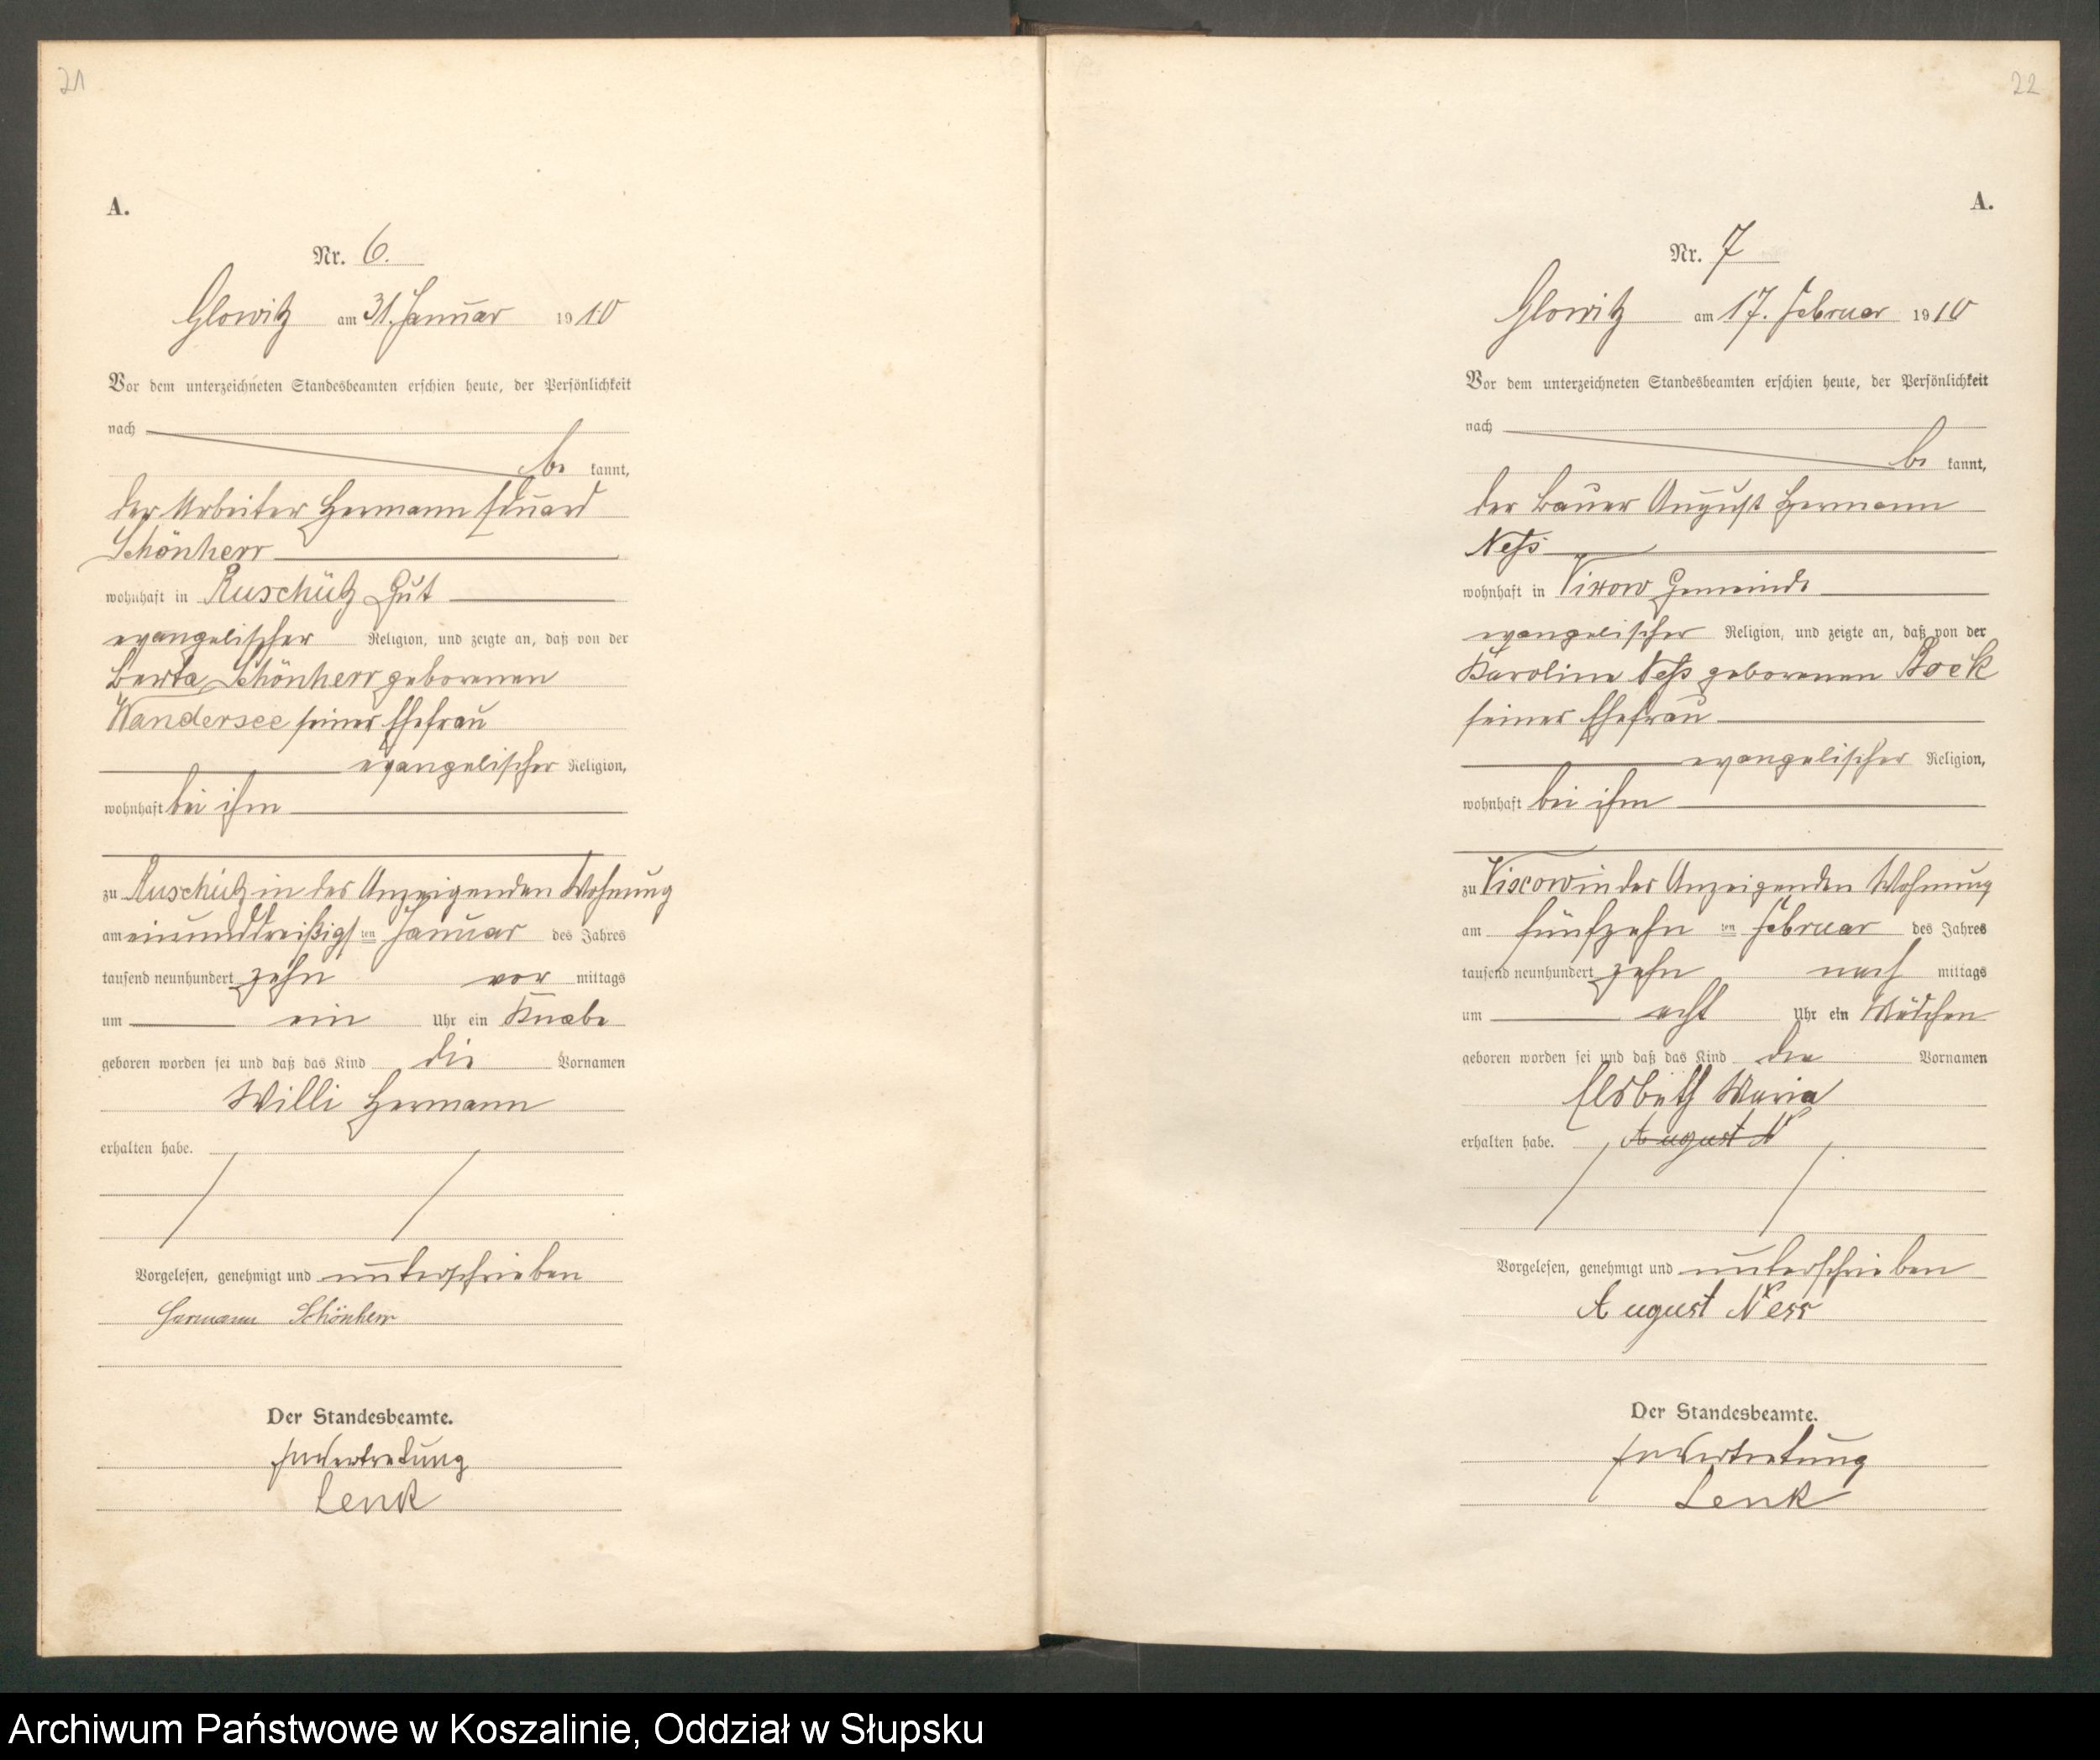 21
A.
Nr. 6.
Glowitz am 31. Januar 1910
Vor dem unterzeichneten Standesbeamten erschien heute, der Persönlichkeit
nach
be kannt,
der Arbeiter Hermann Eduard
Schönherr
wohnhaft in Ruschütz Gut
evangelischer Religion, und zeigte an, daß von der
Berta Schönherr geborenen
Wandersee seiner Ehefrau
evangelischer Religion,
wohnhaft bei ihm
zu Ruschütz in des Anzeigenden Wohnung
am einunddreißigsten Januar des Jahres
tausend neunhundert zehn vor mittags
um ein Uhr ein Knabe
geboren worden sei und daß das Kind die Vornamen
Willi Hermann
erhalten habe.
Vorgelesen, genehmigt und unterschrieben
Hermann Schönherr
Der Standesbeamte.
In Vertretung
Lenk
22
A.
Nr. 7
Glowitz am 17. Februar 1910
Vor dem unterzeichneten Standesbeamten erschien heute, der Persönlichkeit
nach
be kannt,
der Bauer August Hermann
Neß
wohnhaft in Vixow Gemeinde
evangelischer Religion, und zeigte an, daß von der
Karoline Neß geborenen Bock
seiner Ehefrau
evangelischer Religion,
wohnhaft bei ihm
zu Viscow in des Anzeigenden Wohnung
am fünfzehn ten Februar des Jahres
tausend neunhundert zehn nach mittags
um acht Uhr ein Mädchen
geboren worden sei und daß das Kind die Vornamen
Elsbeth Maria
erhalten habe. August N
Vorgelesen, genehmigt und unterschrieben
August Ness
Der Standesbeamte.
In Vertretung
Lenk
Archiwum Państwowe w Koszalinie, Oddział w Słupsku